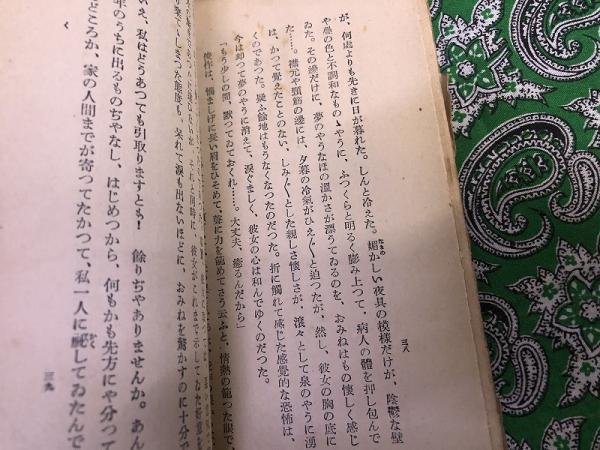 三八
が、何處よりも先きに日が暮れた。しんと冷えた。媚かしい夜具の模様だけが、陰鬱な壁
や疊の色と不調和なものゝやうに、ふつくらと明るく膨み上つて、病人の體を押し包んで
ゐた。その邊だけに、夢のやうなほの溫かさが漂うてゐるのを、おみねはもの懷しく感じ
た……。襟元や頸筋の邊には、夕暮の冷氣がひえ〴〵と迫つたが、然し、彼女の胸の底に
は、かつて覺えたことのない、しみ〴〵とした親しさ懷しさが、滾々として泉のやうに湧
くのであつた。疑ふ餘地はもうなくなつたのだつた。折に觸れて感じた感覺的な恐怖は、
今は却つて夢のやうに消えて、淚ぐましく、彼女の心は和んでゆくのだつた。
「もう少しの間、默つてゐておくれ……。大丈夫、癒るんだから」
惱ましげに長い眉をひそめて、聲に力を籠めてさう云ふと、情熱の籠った眼で、
呆れて淚も出ないほどに、おみねを驚かすのに十分で
いえ、私はどうあつても引取りますとも！　餘りぢやありませんか。あん
年のうちに出るものぢやなし、はじめつから、何もかも先方にや分つて
どころか、家の人間までが寄つてたかつて、私一人に隱してゐたんで
三九